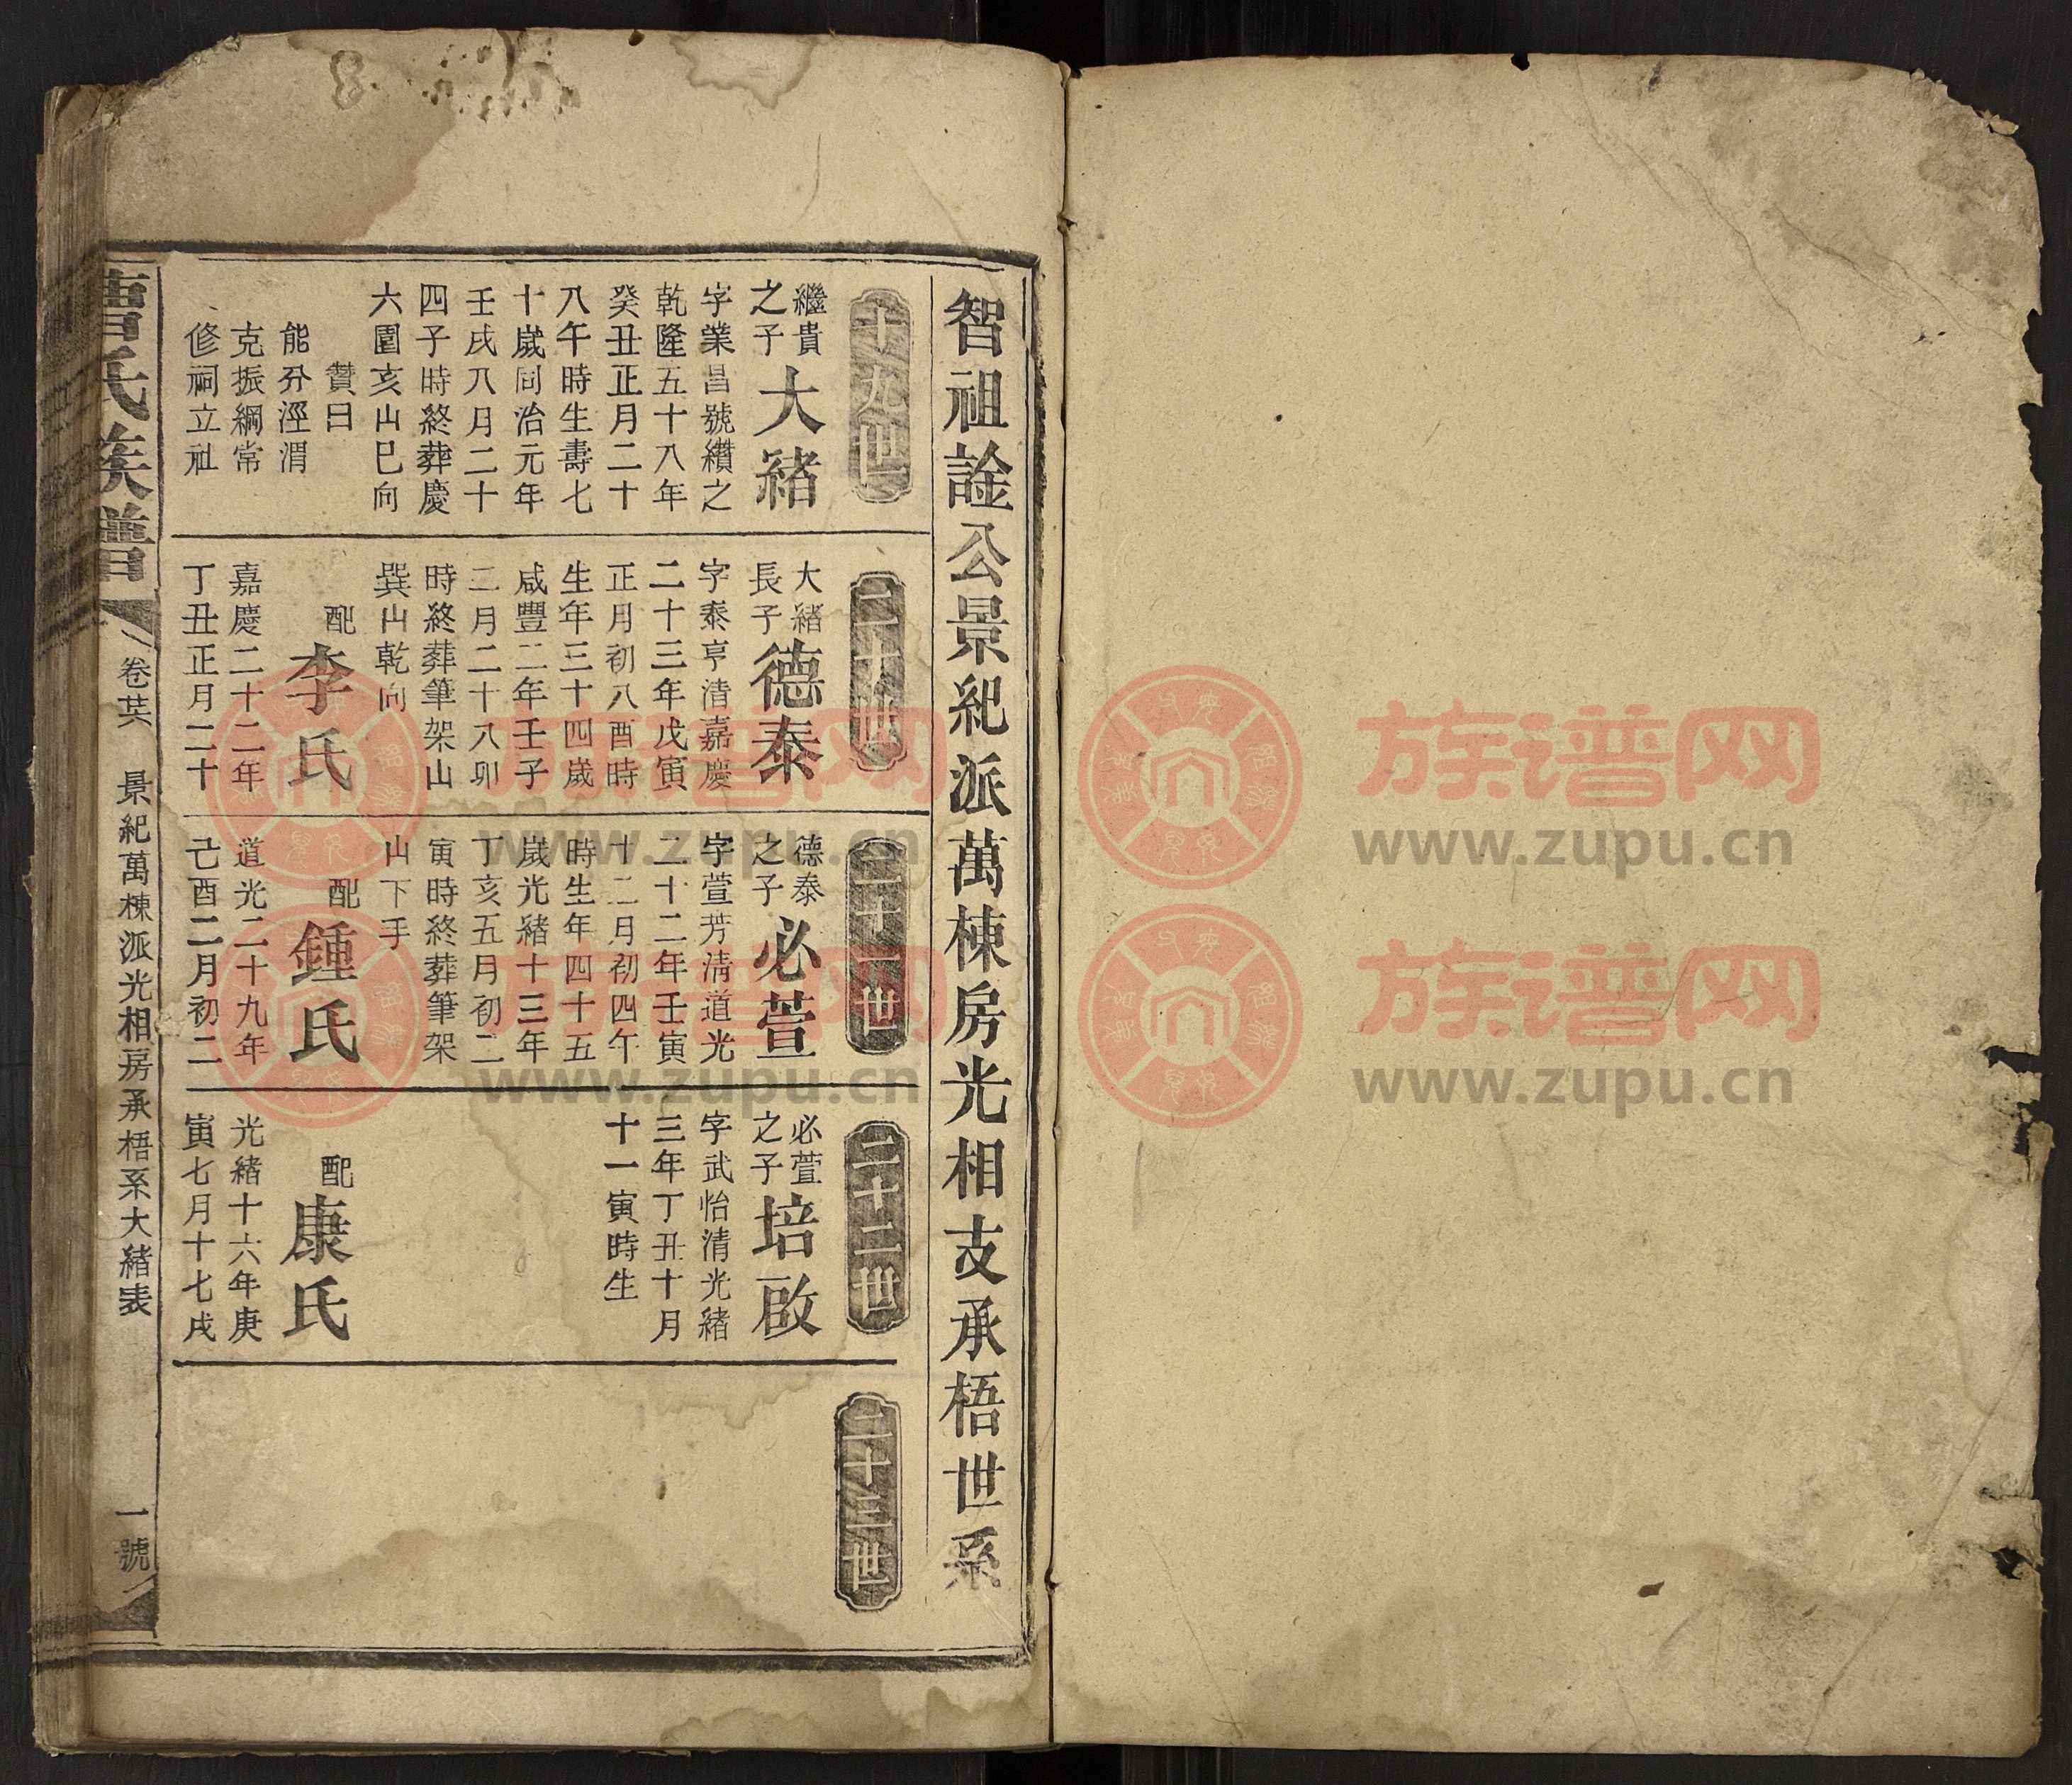 智祖詮公景紀派萬棟房光相支承梧世系
十九世
繼貴
之子
大緒
字業昌號纘之
乾隆五十八年
癸丑正月二十
八午時生壽七
十歲同治元年
壬戌八月二十
四子時終葬慶
六圍亥山巳向
贊曰
能分涇渭
克振綱常
修祠立祉
二十世
大緒
長子
德泰
字泰亨清嘉慶
二十三年戊寅
正月初八酉時
生年三十四歲
咸豐二年壬子
二月二十八卯
時終葬筆架山
巽山乾向
配
李氏
嘉慶二十二年
丁丑正月二十
二十一世
德泰
之子
必萱
字萱芳清道光
二十二年壬寅
十二月初四午
時生年四十五
歲光緒十三年
丁亥五月初二
寅時終葬筆架
山下手
配
鍾氏
道光二十九年
己酉二月初二
二十二世
必萱
之子
培啟
字武怡清光緒
三年丁丑十月
十一寅時生
配
康氏
光緒十六年庚
寅七月十七戌
二十三世
氏族譜
卷廿六
景紀萬棟派光相房承梧系大緒表
一號
族谱网
www.zupu.cn
族谱网
www.zupu.cn
族谱网
www.zupu.cn
族谱网
www.zupu.cn